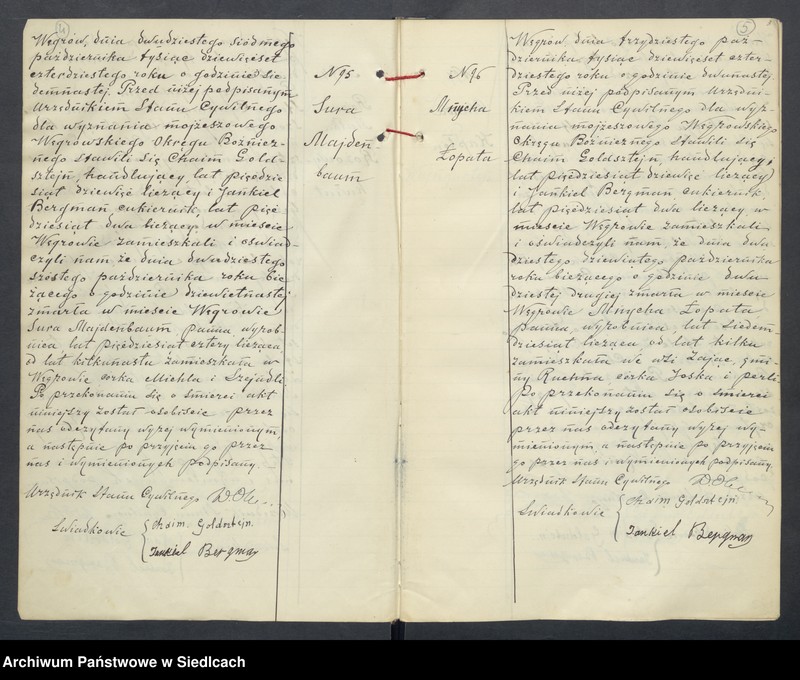 4
Węgrów, dnia dwudziestego siódmego
października tysiąc dziewięćset
czterdziestego roku o godzinie sie-
demnastej. Przed niżej podpisanym
Urzędnikiem Stanu Cywilnego
dla wyznania mojżeszowego
Węgrowskiego Okręgu Bożnicz-
nego stawili się Chaim Gold-
sztejn, handlujący, lat pięćdzie
siąt dziewięć liczący i Jankiel
Bergman, cukiernik, lat pięć
dziesiąt dwa liczący, w mieście
Węgrowie zamieszkali i oświad-
czyli nam że dnia dwudziestego
szóstego października roku bie
żącego o godzinie dziewiętnastej
zmarła w mieście Węgrowie
Sura Majdenbaum panna wyrob-
nica lat pięćdziesiąt cztery licząca
od lat kilkunastu zamieszkała w
Węgrowie córka Michla i Szejndli
Po przekonaniu się o śmierci akt
niniejszy został osobiście przez
nas odczytany wyżej wymienionym,
a następnie po przyjęciu go przez
nas i wymienionych podpisany
Urzędnik Stanu Cywilnego
Świadkowie
Chaim. Goldsztejn.
Jankiel Bergman
N 95
Sura
Majden
baum
N 96
Mnycha
Łopata
5
Węgrów, dnia trzydziestego paź-
dziernika tysiąc dziewięćset czter-
dziestego roku o godzinie dwunastej.
Przed niżej podpisanym Urzędni-
kiem Stanu Cywilnego dla wyz-
nania mojżeszowego Węgrowskiego
Okręgu Bożnicznego stawili się
Chaim Goldsztejn, handlujący,
lat pięćdziesiąt dziewięć liczący
i Jankiel Bergman cukiernik,
lat pięćdziesiąt dwa liczący, w
mieście Węgrowie zamieszkali
i oświadczyli nam, że dnia dwu
dziestego dziewiątego października
roku bieżącego o godzinie dwu
dziestej drugiej zmarła w mieście
Węgrowie Mnycha Łopata
panna, wyrobnica, lat siedem-
dziesiąt licząca od lat kilku
zamieszkała we wsi Zając, gmi-
ny Ruchna, córka Joska i Perli
Po przekonaniu się o śmierci
akt niniejszy został osobiście
przez nas odczytany wyżej wy-
mienionym, a następnie po przyjęciu
go przez nas i wymienionych podpisany.
Urzędnik Stanu Cywilnego
Świadkowie
Chaim Goldsztejn.
Jankiel Bergman
Archiwum Państwowe w Siedlcach